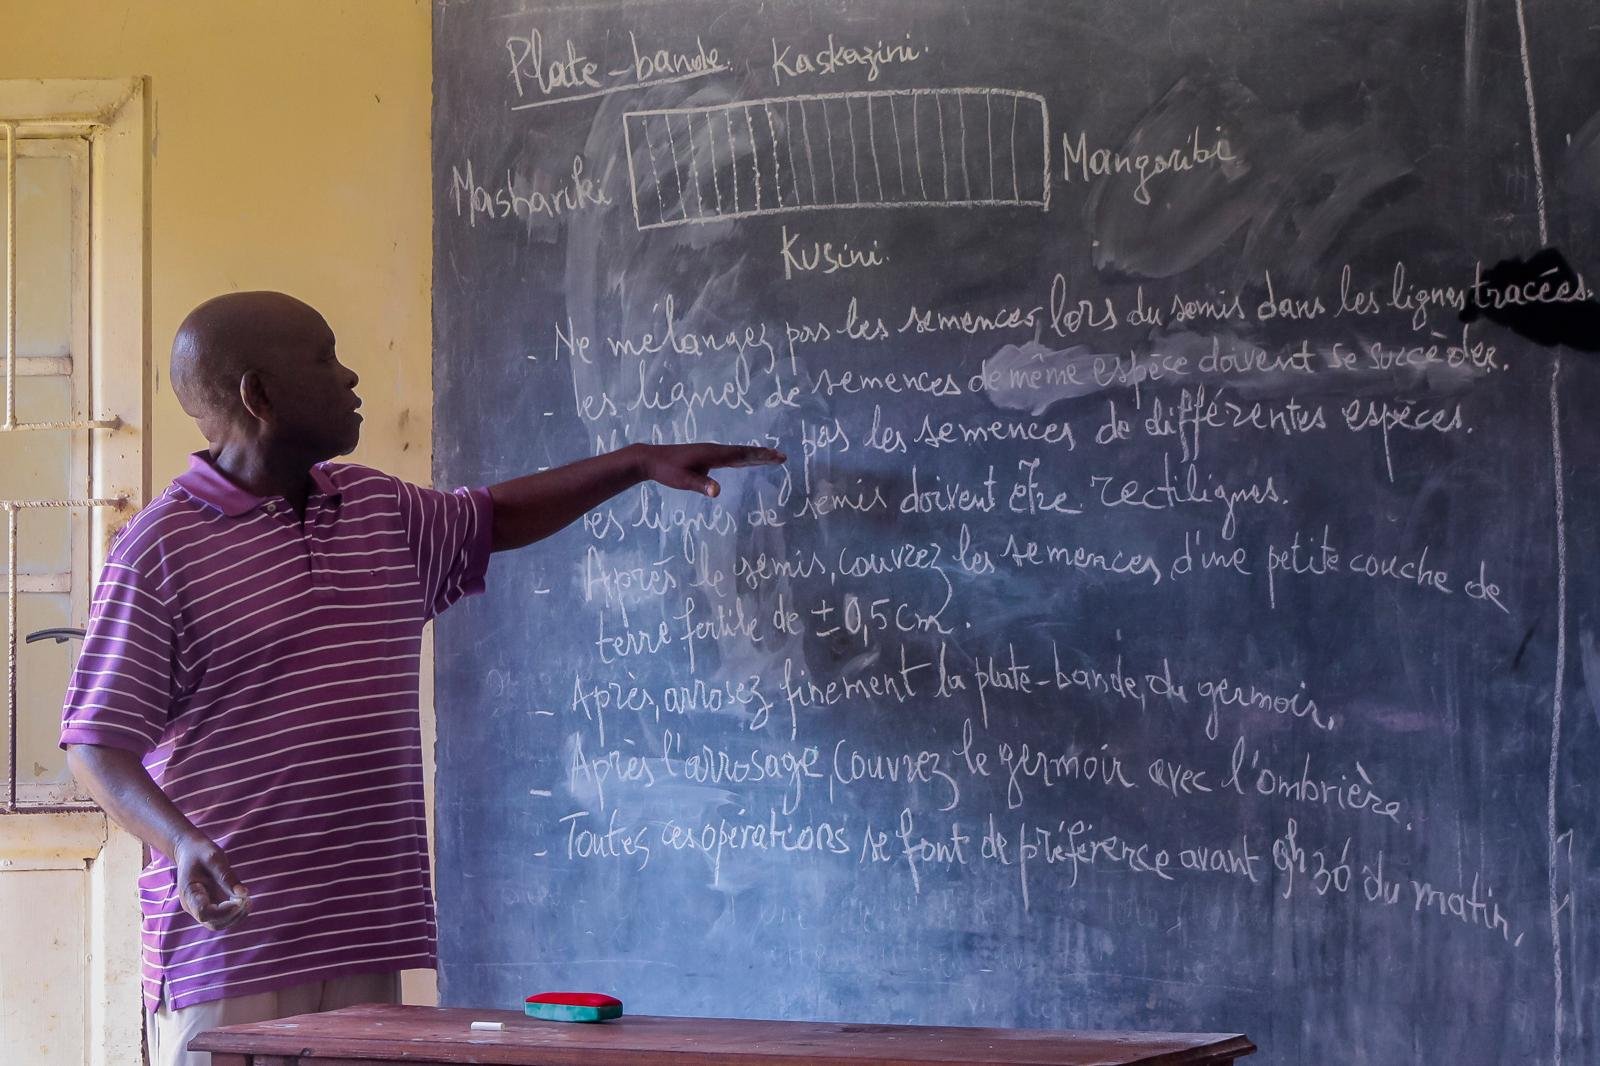 Plate-bande. Kaskazini.
Mashariki Mangaribi
Kusini.
- Ne mélangez pas les semences lors du semis dans les lignes tracées.
- Les lignes de semences de même espèce doivent se succéder.
- pas les semences de différentes espèces.
Les lignes de semis doivent être rectilignes.
- Après le semis, couvrez les semences d'une petite couche de
terre fertile de ± 0,5 cm.
- Après, arrosez finement la plate-bande, du germoir.
- Après l'arrosage, couvrez le germoir avec l'ombrière.
- Toutes ces opérations se font de préférence avant 9h30 du matin.